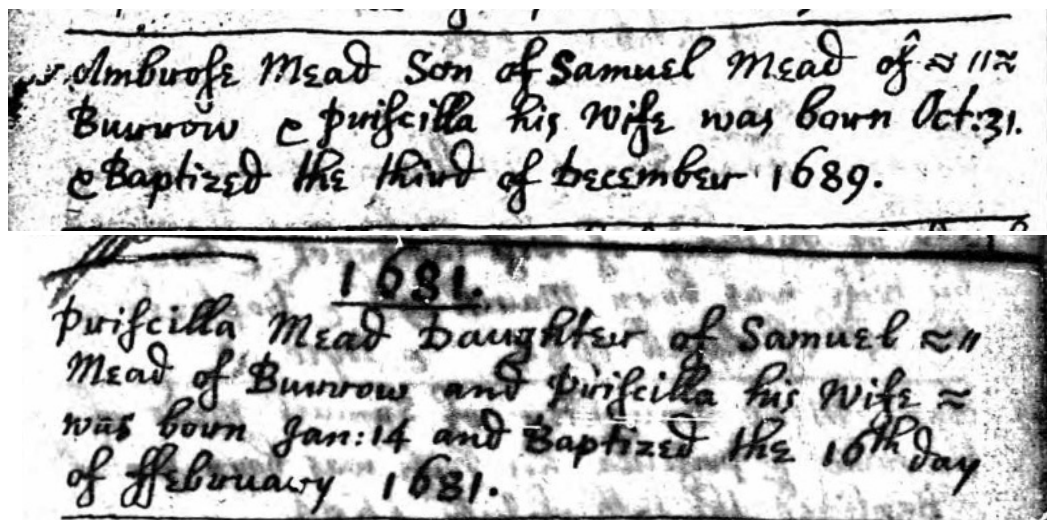 Ambrose Mead Son of Samuel Mead of
Burrow & Priscilla his Wife was born Oct: 31.
& Baptized the third of December 1689.
1681.
Priscilla Mead Daughter of Samuel
Mead of Burrow and Priscilla his Wife
was born Jan: 14 and Baptized the 16th day
of ffebruary 1681.